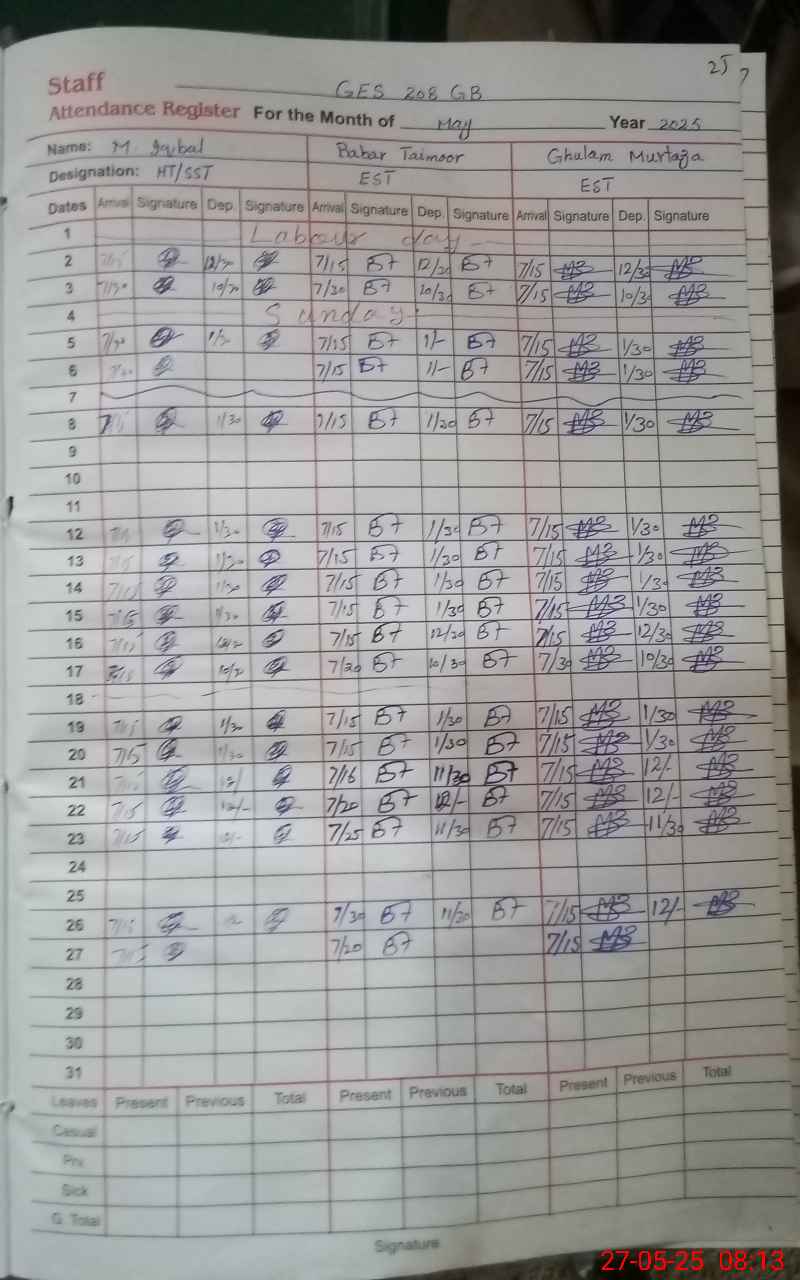 25 7
Staff GES 208 GB
Attendance Register For the Month of May Year 2025
Name: M. Iqbal Babar Taimoor Ghulam Murtaza
Designation: HT/SST EST EST
Dates Arrival Signature Dep. Signature Arrival Signature Dep. Signature Arrival Signature Dep. Signature
1 Labour day
2 12/30 7/15 BT 12/30 BT 7/15 12/30
3 7/30 10/30 7/30 BT 10/30 BT 7/15 10/30
4 Sunday
5 7/30 1/30 7/15 BT 1/- BT 7/15 1/30
6 7/15 BT 1/- BT 7/15 1/30
7
8 1/30 7/15 BT 1/30 BT 7/15 1/30
9
10
11
12 1/30 7/15 BT 1/30 BT 7/15 1/30
13 7/15 1/30 7/15 BT 1/30 BT 7/15 1/30
14 7/15 1/30 7/15 BT 1/30 BT 7/15 1/30
15 7/15 1/30 7/15 BT 1/30 BT 7/15 1/30
16 7/15 7/15 BT 12/30 BT 7/15 12/30
17 7/30 BT 10/30 BT 7/30 10/30
18
19 7/15 1/30 7/15 BT 1/30 BT 7/15 1/30
20 7/15 1/30 7/15 BT 1/30 BT 7/15 1/30
21 12/ 7/16 BT 11/30 BT 7/15 12/-
22 7/15 12/- 7/20 BT 12/- BT 7/15 12/-
23 7/15 7/25 BT 11/30 BT 7/15 11/30
24
25
26 7/15 7/30 BT 11/30 BT 7/15 12/-
27 7/15 7/20 BT 7/15
28
29
30
31
Leaves Present Previous Total Present Previous Total Present Previous Total
Casual
Prv
Sick
G. Total
Signature
27-05-25 08:13